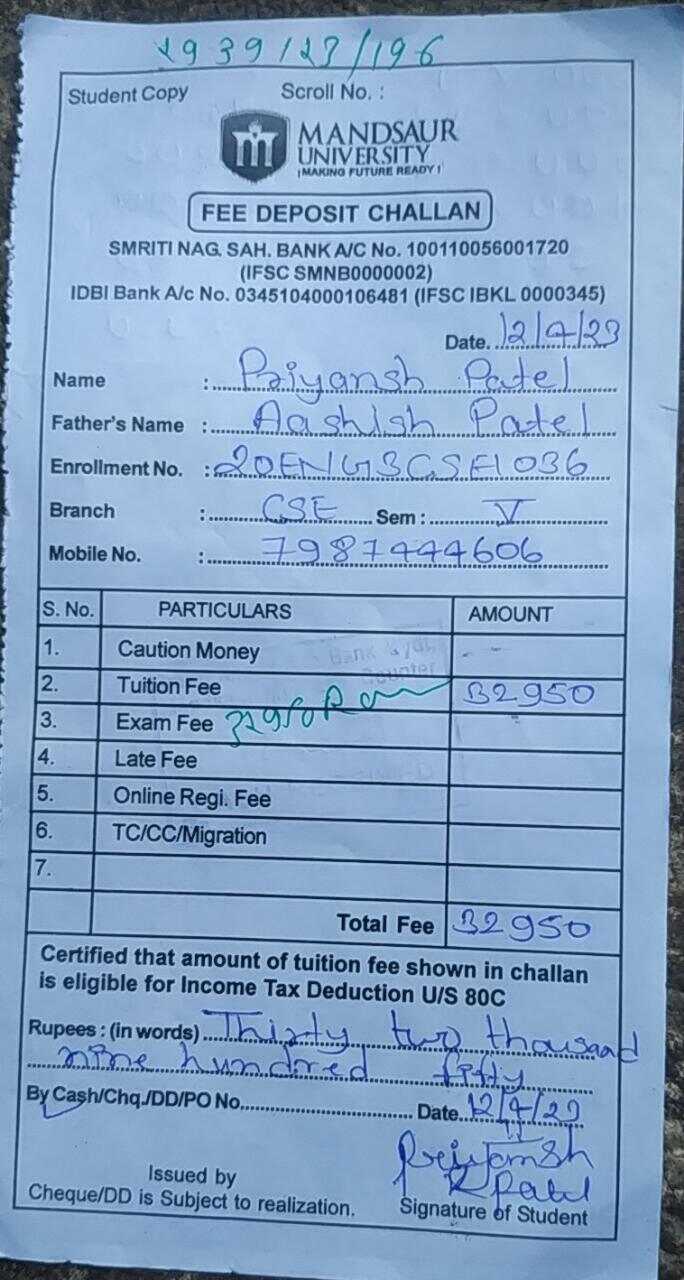 2939/23/196
Student Copy Scroll No. :
MANDSAUR
UNIVERSITY
MAKING FUTURE READY
FEE DEPOSIT CHALLAN
SMRITI NAG. SAH. BANK A/C No. 100110056001720
(IFSC SMNB0000002)
IDBI Bank A/c No. 0345104000106481 (IFSC IBKL 0000345)
Date. 12/4/23
Name : Priyansh Patel
Father's Name : Aashish Patel
Enrollment No. : 20ENG3CSE1036
Branch : CSE Sem : V
Mobile No. : 7987444606
S. No. PARTICULARS AMOUNT
1. Caution Money
2. Tuition Fee 32950
3. Exam Fee 32950
4. Late Fee
5. Online Regi. Fee
6. TC/CC/Migration
7.
Total Fee 32950
Certified that amount of tuition fee shown in challan
is eligible for Income Tax Deduction U/S 80C
Rupees : (in words) Thirty two thousand
nine hundred fifty
By Cash/Chq./DD/PO No. Date. 12/4/23
Priyansh
Patel
Issued by
Cheque/DD is Subject to realization. Signature of Student